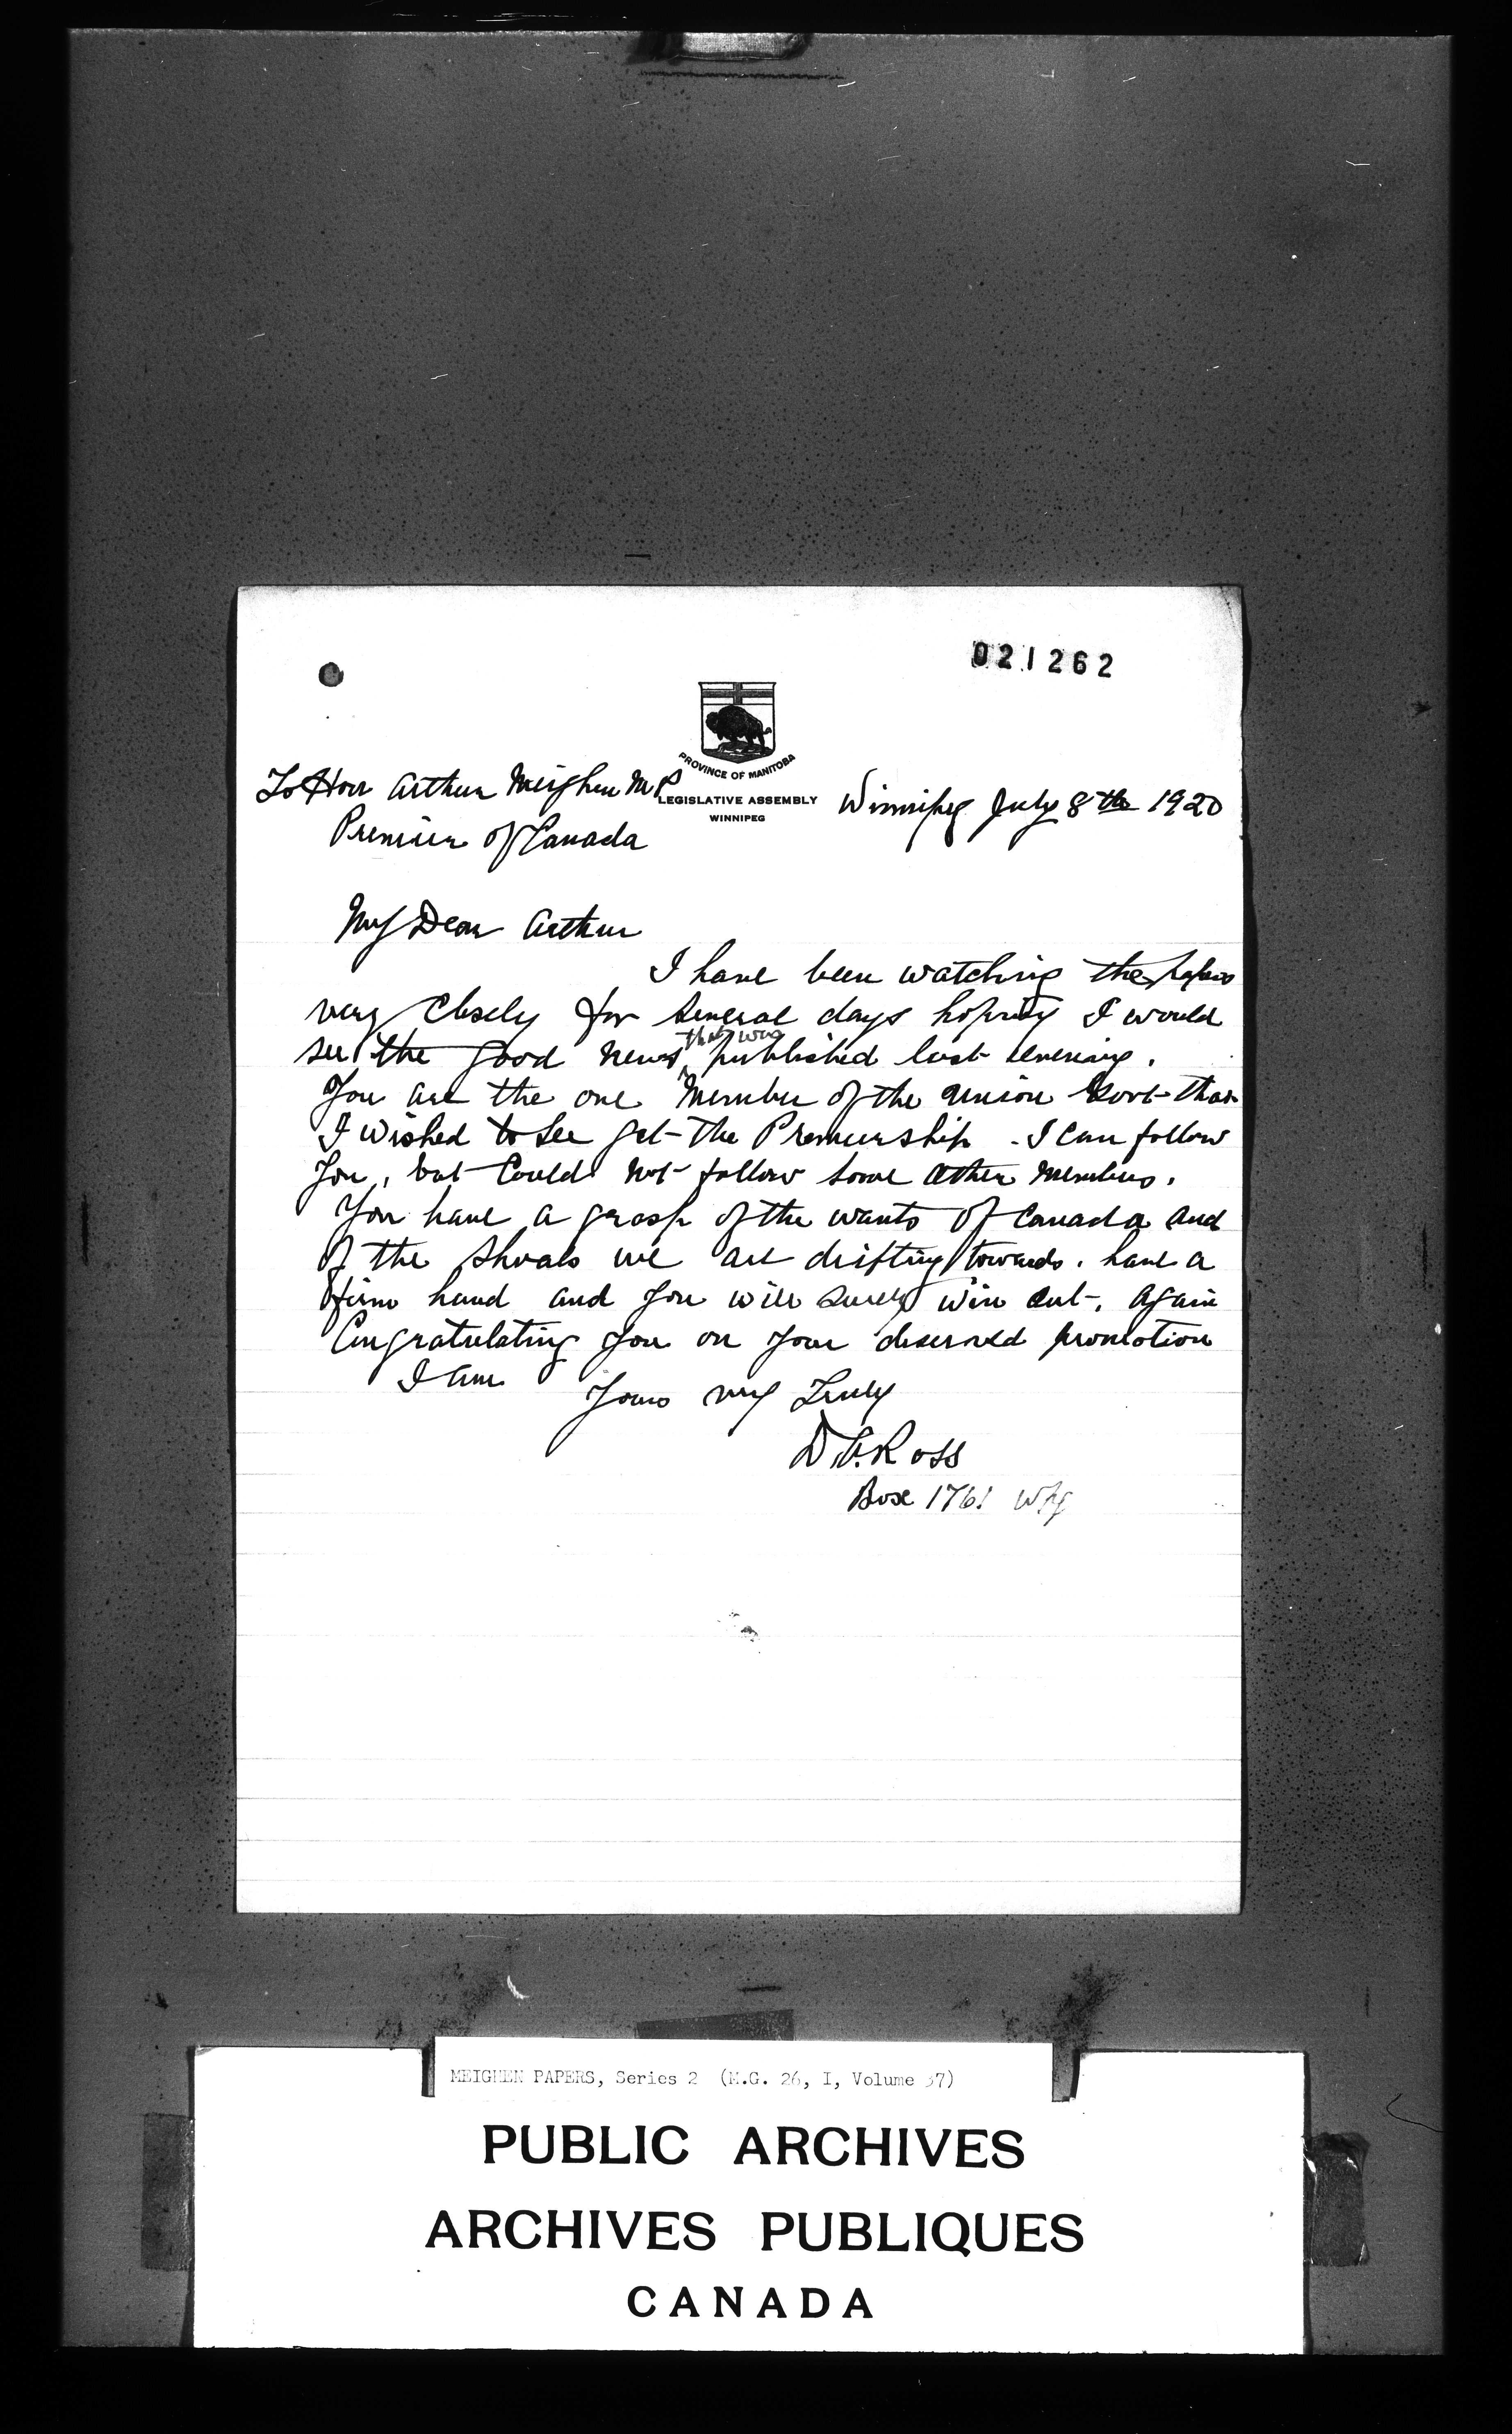 021262
PROVINCE OF MANITOBA
LEGISLATIVE ASSEMBLY
WINNIPEG
To Hon Arthur Meighen M P
Premier of Canada
Winnipeg July 8th 1920
My Dear Arthur
I have been watching the papers
very closely for several days hoping I would
see the good news that was published last evening.
You are the one Member of the Union Govt that
I wished to see get the Premiership. I can follow
You, but Could not follow some other Members.
You have a grasp of the wants of Canada and
of the shoals we are drifting towards. have a
firm hand and you will surely win out. Again
Congratulating you on your deserved promotion
I am
Yours very Truly
Ross
Box 1761 Wpg
MEIGHEN PAPERS, Series 2 (M.G. 26, I, Volume 37)
PUBLIC ARCHIVES
ARCHIVES PUBLIQUES
CANADA